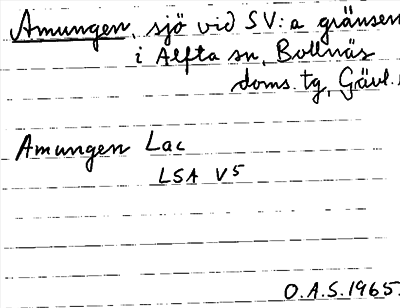 Amungen, sjö vid SV:a gränsen
i Alfta sn, Bollnäs
doms.tg, Gävl.
Amungen Lac
LSA V5
O.A.S. 1965.